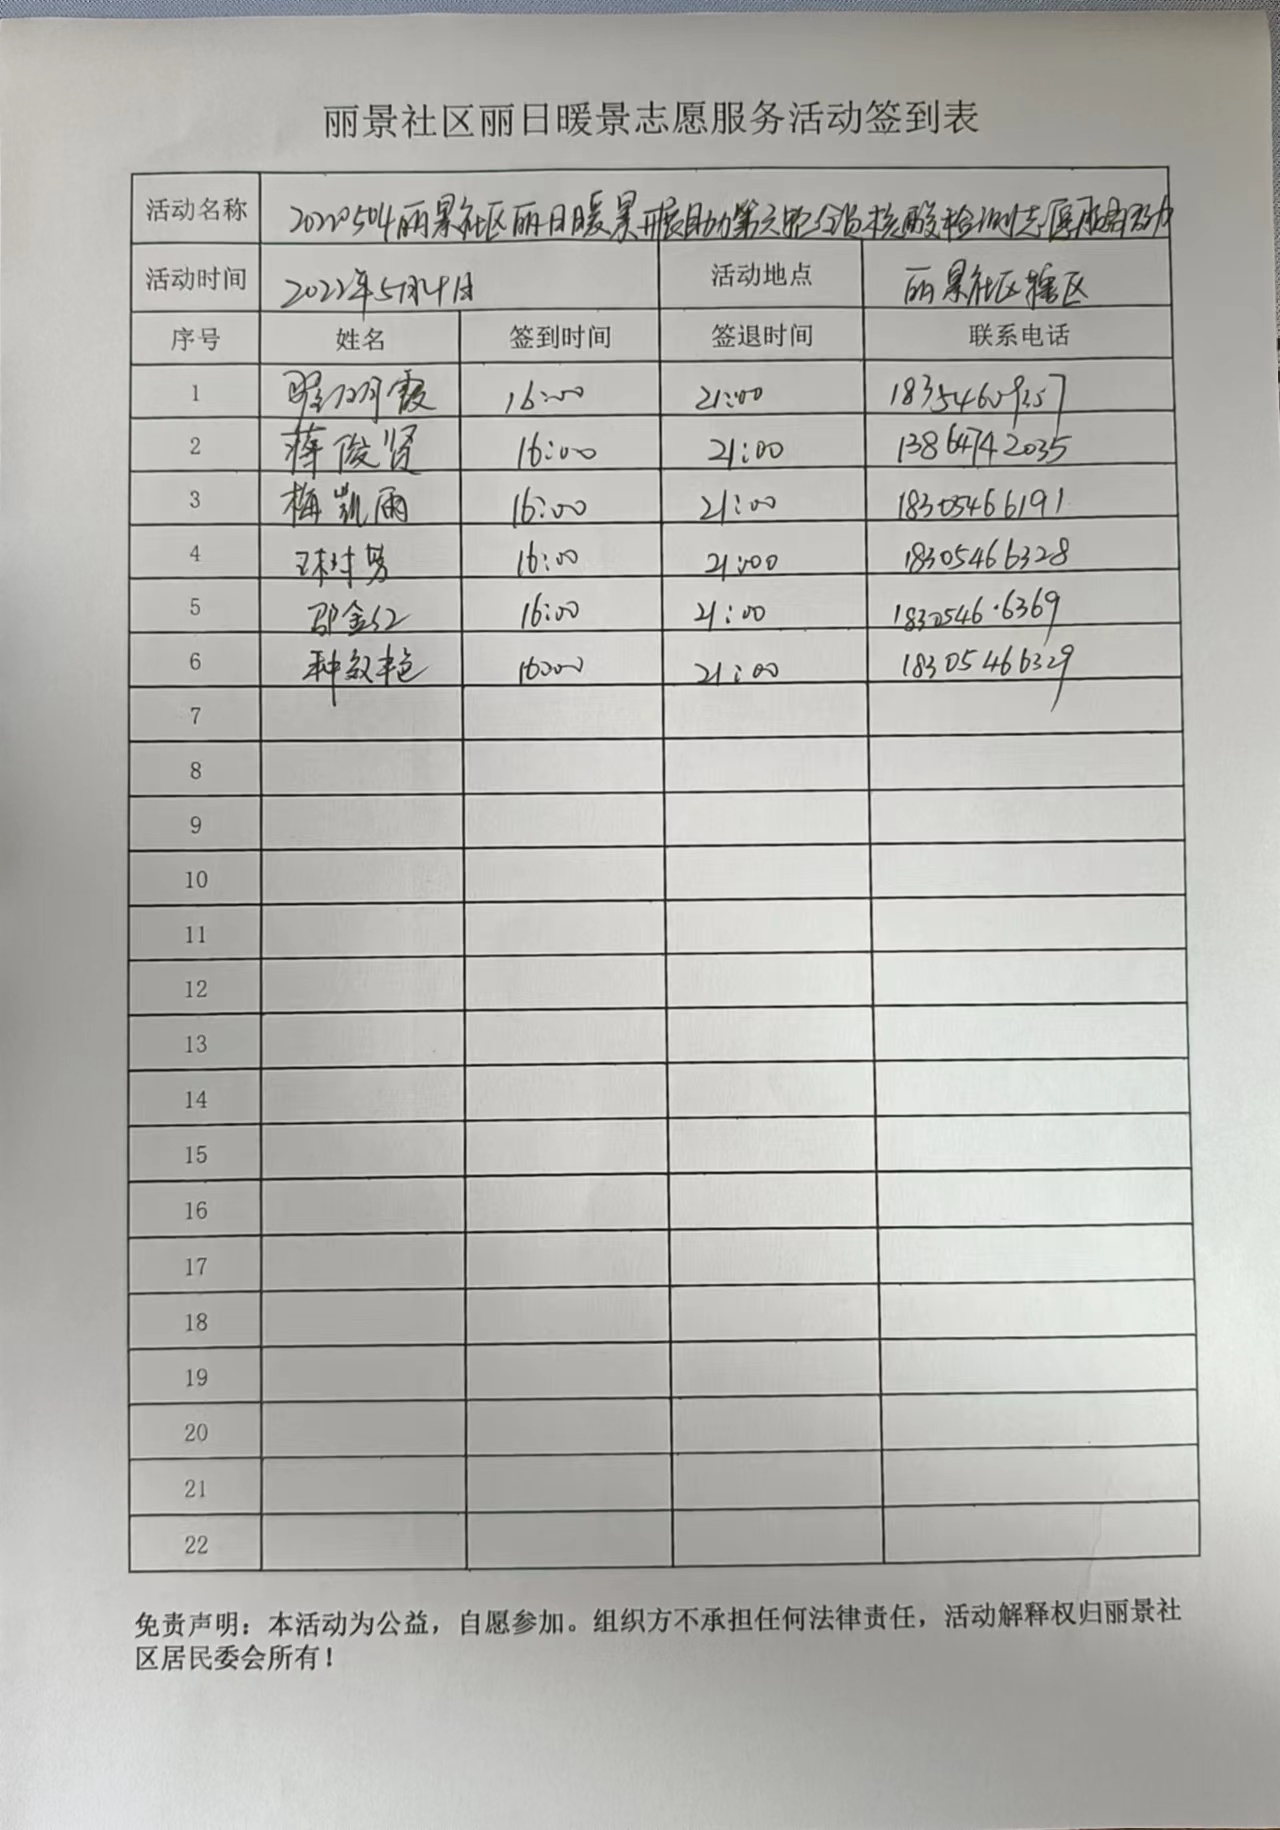 丽景社区丽日暖景志愿服务活动签到表
活动名称 20220504丽景社区丽日暖景开展助力第六轮全员核酸检测志愿服务活动
活动时间 2022年5月4日 活动地点 丽景社区辖区
序号 姓名 签到时间 签退时间 联系电话
1 霞 16:00 21:00 18354609357
2 蒋俊贤 16:00 21:00 13864742035
3 梅凯雨 16:00 21:00 18305466191
4 16:00 21:00 18305466328
5 16:00 21:00 18305466369
6 种效艳 16:00 21:00 18305466329
7
8
9
10
11
12
13
14
15
16
17
18
19
20
21
22
免责声明：本活动为公益，自愿参加。组织方不承担任何法律责任，活动解释权归丽景社
区居民委会所有！